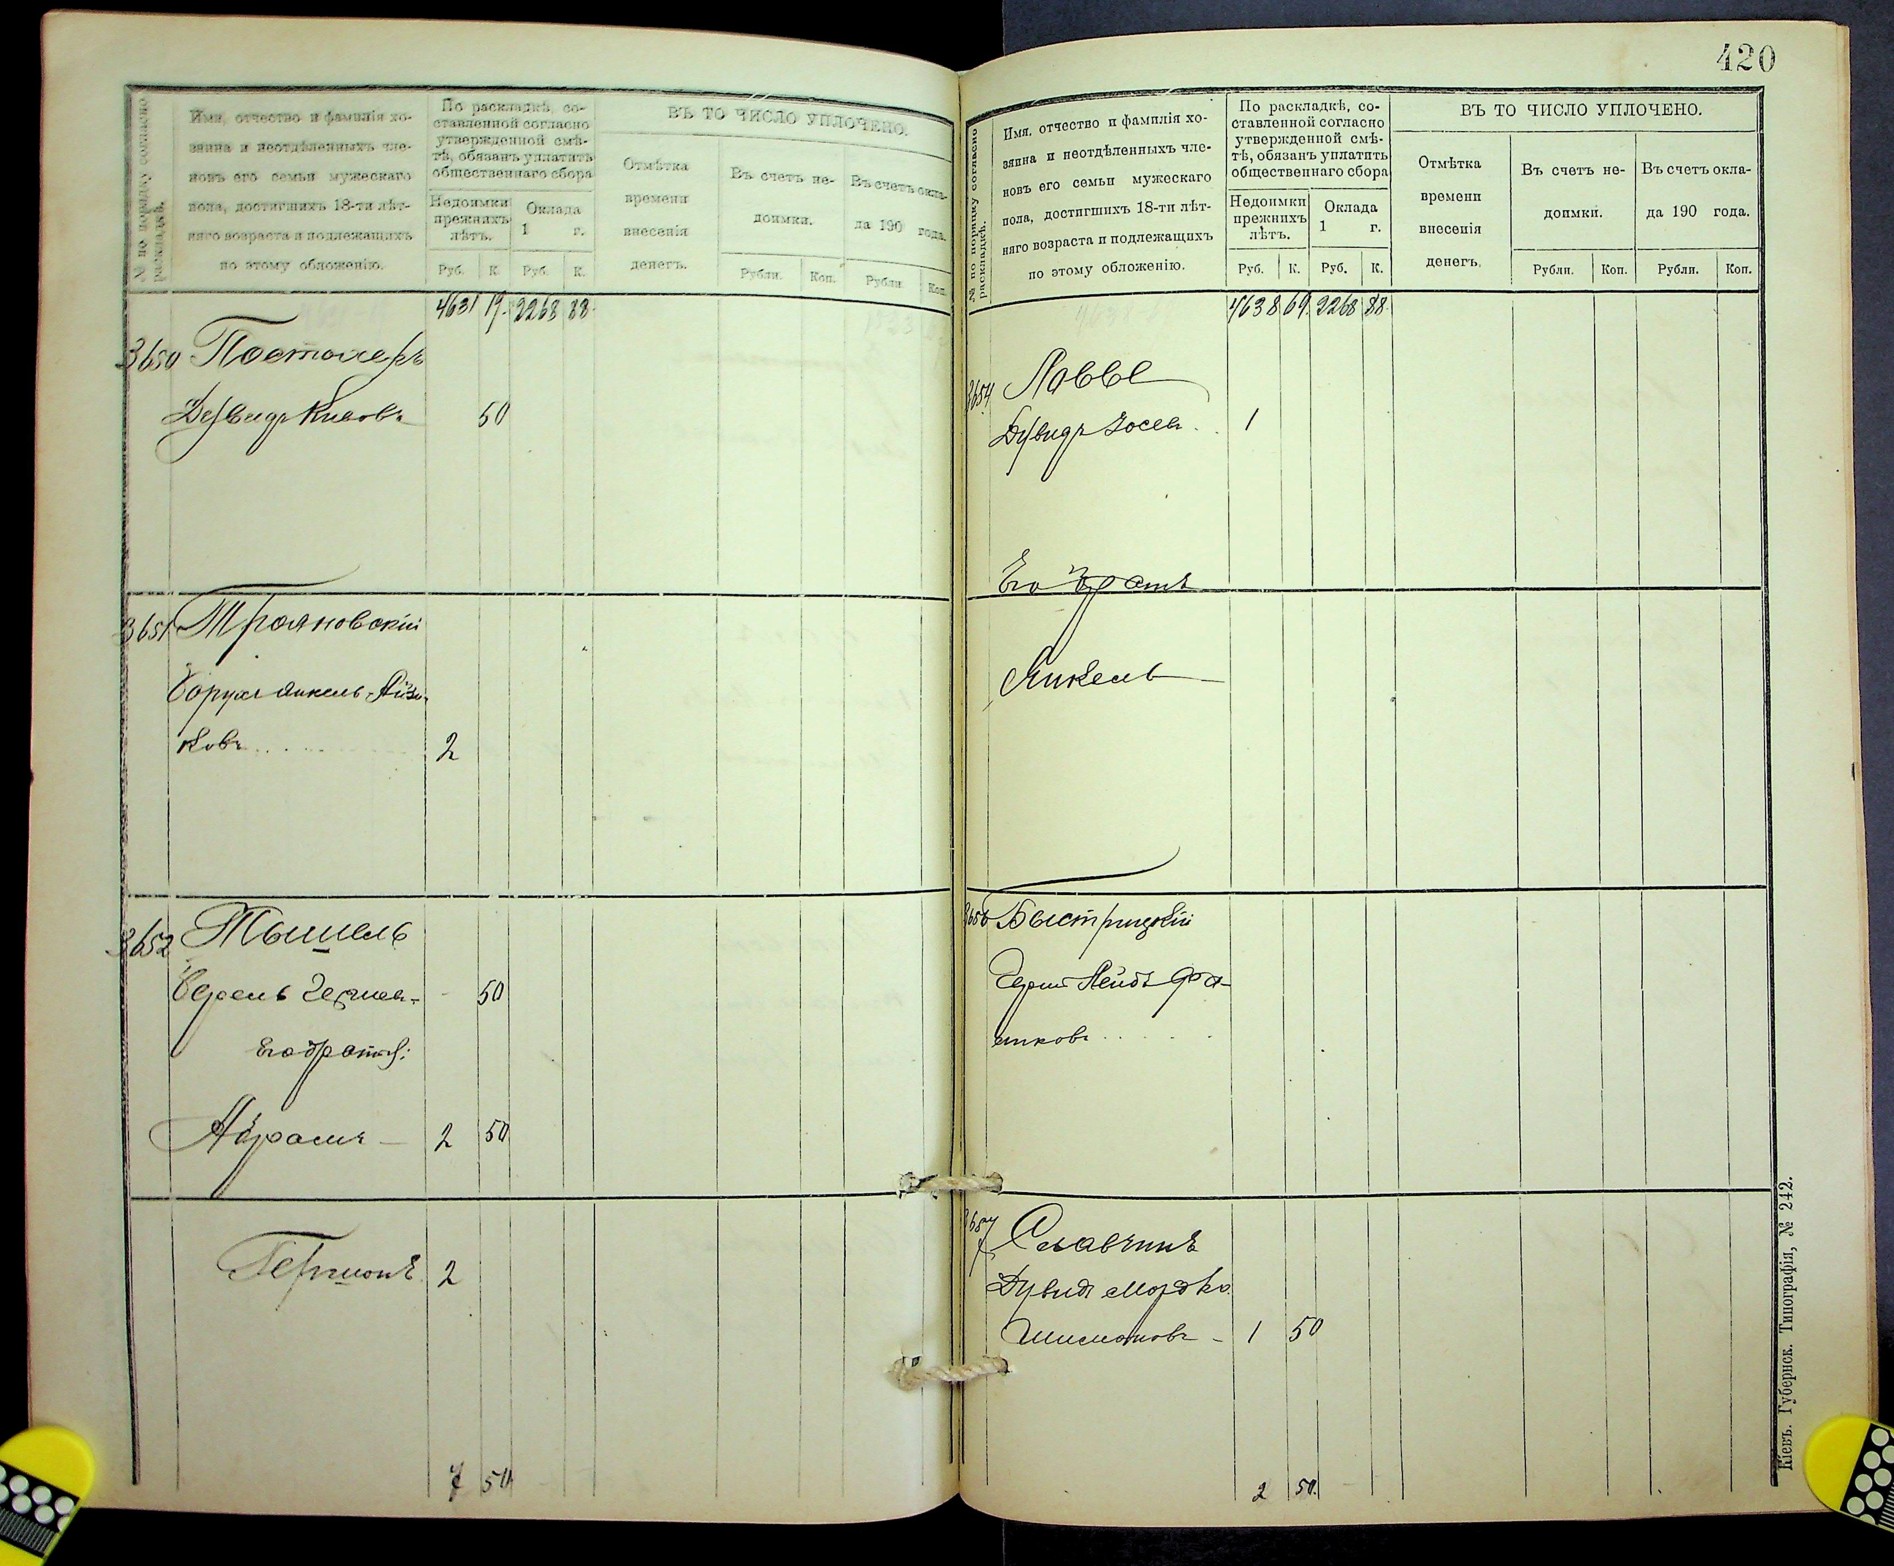 № по порядку согласно раскладкѣ.
Имя, отчество и фамилія хо-
зяина и неотдѣленныхъ чле-
новъ его семьи мужескаго
пола, достигшихъ 18-ти лѣт-
няго возраста и подлежащихъ
по этому обложенію.
По раскладкѣ, со-
ставленной согласно
утвержденной смѣ-
тѣ, обязанъ уплатить
общественнаго сбора
Недоимки
прежнихъ
лѣтъ.
Оклада
1 г.
Руб. К. Руб. К.
ВЪ ТО ЧИСЛО УПЛОЧЕНО.
Отмѣтка
времени
внесенія
денегъ.
Въ счетъ не-
доимки.
Въ счетъ окла-
да 190 года.
Рубли. Коп. Рубли. Коп.
4631 19. 2268 88.
3650 Постолеръ
Дувидъ 50
3651 Трояновскій
Борухъ Янкель-Айзи-
ковъ 2
3652 Тышель
Берель 50
его братья:
Абрамъ 2 50
Гершонъ 2
7 50
420
№ по порядку согласно раскладкѣ.
Имя, отчество и фамилія хо-
зяина и неотдѣленныхъ чле-
новъ его семьи мужескаго
пола, достигшихъ 18-ти лѣт-
няго возраста и подлежащихъ
по этому обложенію.
По раскладкѣ, со-
ставленной согласно
утвержденной смѣ-
тѣ, обязанъ уплатить
общественнаго сбора
Недоимки
прежнихъ
лѣтъ.
Оклада
1 г.
Руб. К. Руб. К.
ВЪ ТО ЧИСЛО УПЛОЧЕНО.
Отмѣтка
времени
внесенія
денегъ.
Въ счетъ не-
доимки.
Въ счетъ окла-
да 190 года.
Рубли. Коп. Рубли. Коп.
4638 69. 2268 88.
3654
Дувидъ Іосев. 1
Его братъ
Янкель
3656 Быстрицкій
Герш Лейбъ
3657 Славчинъ
Дувидъ Мордко
Шимоновъ 1 50
2 50.
Кіевъ. Губернск. Типографія, № 242.